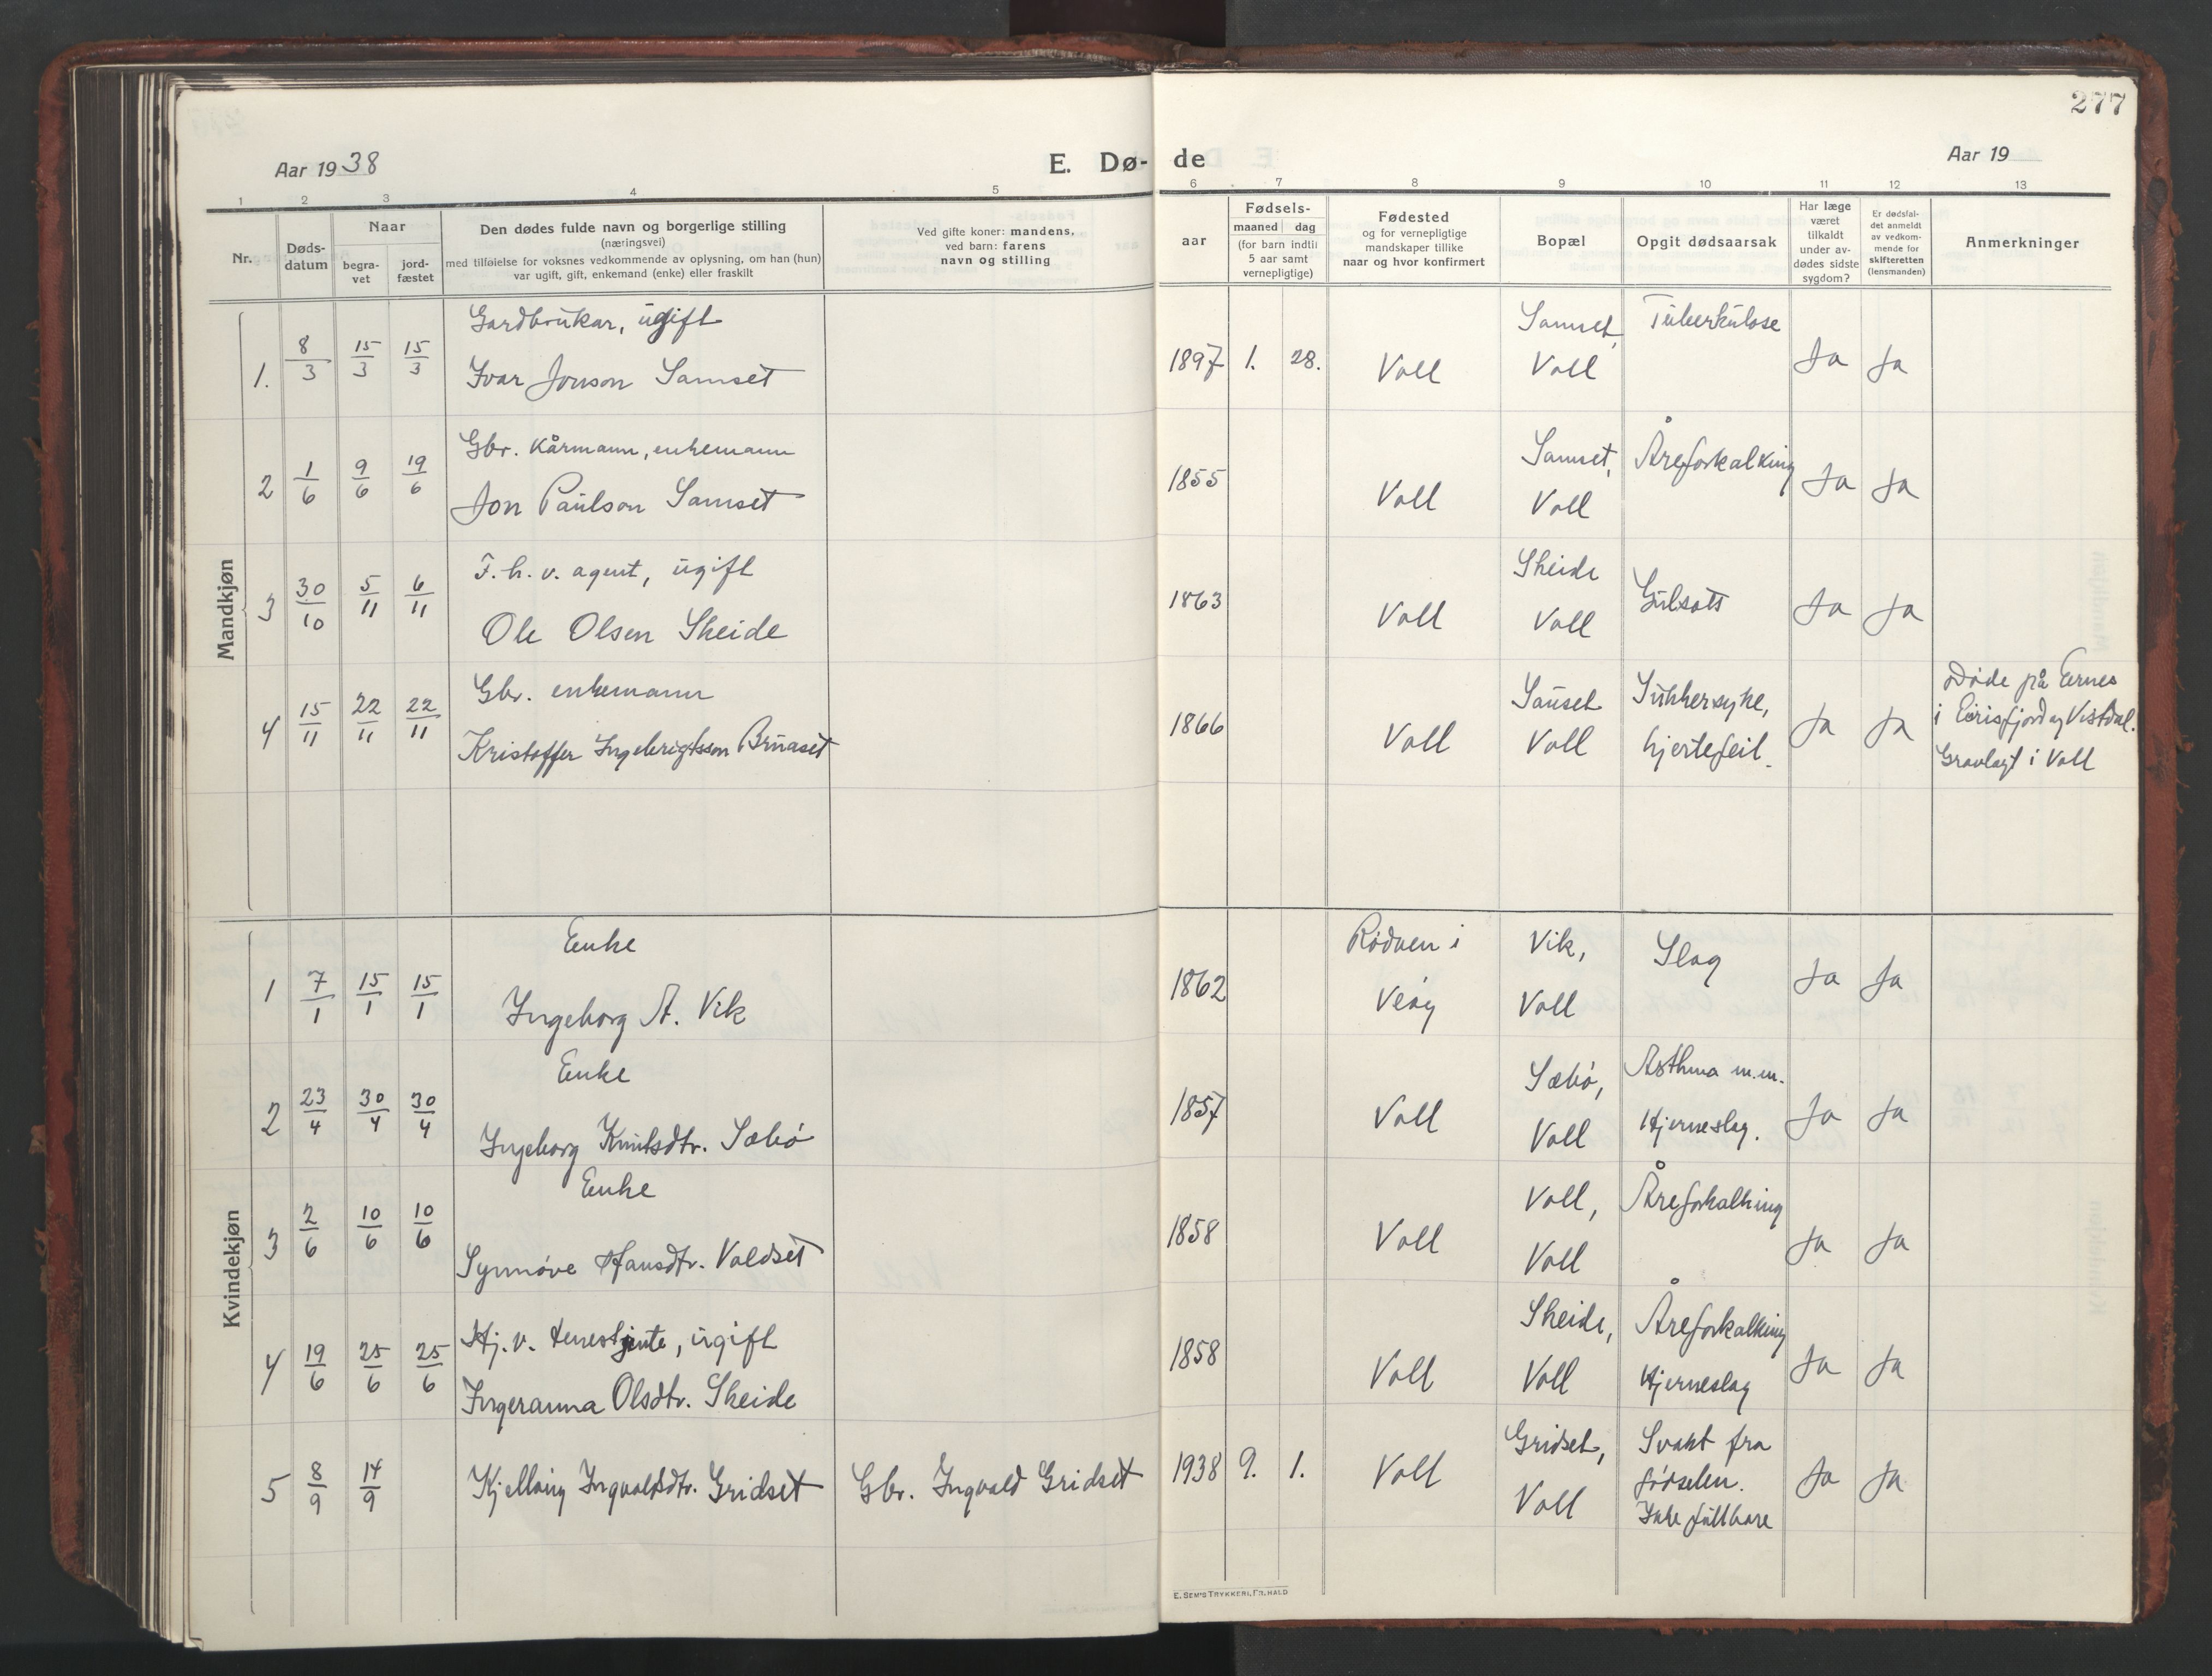 277
Aar 1938
E. Dø-
de
Aar 19
1 2 3 4 5 6 7 8 9 10 11 12 13
Nr.
Døds-
datum
Naar
begra-
vet
jord-
fæstet
Den dødes fulde navn og borgerlige stilling
(næringsvei)
med tilføielse for voksnes vedkommende av oplysning, om han (hun)
var ugift, gift, enkemand (enke) eller fraskilt
Ved gifte koner: mandens,
ved barn: farens
navn og stilling
aar
Fødsels-
maaned dag
(for barn indtil
5 aar samt
vernepligtige)
Fødested
og for vernepligtige
mandskaper tillike
naar og hvor konfirmert
Bopæl
Opgit dødsaarsak
Har læge
været
tilkaldt
under av-
dødes sidste
sygdom?
Er dødsfal-
det anmeldt
av vedkom-
mende for
skifteretten
(lensmanden)
Anmerkninger
Mandkjøn
Gardbrukar, ugift Samset, Tuberkulose
1. 8/3 15/3 15/3 Ivar Jonson Samset 1897 1. 28. Voll Voll Ja Ja
Gbr. kårmann, enkemann Samset, Åreforkalking
2 1/6 9/6 19/6 Jon Paulson Samset 1855 Voll Voll Ja Ja
F. h. v. agent, ugift Skeide
3 30/10 5/11 6/11 Ole Olsen Skeide 1863 Voll Voll Gulsott Ja Ja
Gbr. enkemann Sukkersyke, Døde på
4 15/11 22/11 22/11 Kristoffer Ingebrigtsson Bruaset 1866 Voll Voll hjertefeil. Ja Ja i Eirisfjord og Vistdal.
Gravlagt i Voll
Kvindekjøn
Enke Rødven i Vik, Slag
1 7/1 15/1 15/1 Ingeborg A. Vik 1862 Veøy Voll Ja Ja
Enke Sæbø, Asthma m.m.
2 23/4 30/4 30/4 Ingeborg Knutsdtr. Sæbø 1857 Voll Voll Hjerneslag. Ja Ja
Enke Voll, Åreforkalking
3 2/6 10/6 10/6 Synnøve Hansdtr. Voldset 1858 Voll Voll Ja Ja
Hj. v. tenestjente, ugift Skeide, Åreforkalking
4 19/6 25/6 25/6 Ingeranna Olsdtr. Skeide 1858 Voll Voll Hjerneslag Ja Ja
Gridset, Svakt fra
5 8/9 14/9 Kjellaug Ingvaldsdtr. Gridset Gbr. Ingvald Gridset 1938 9. 1. Voll Voll fødselen. Ja Ja
Ikke fullbåre
E. SEM'S TRYKKERI, FR.HALD